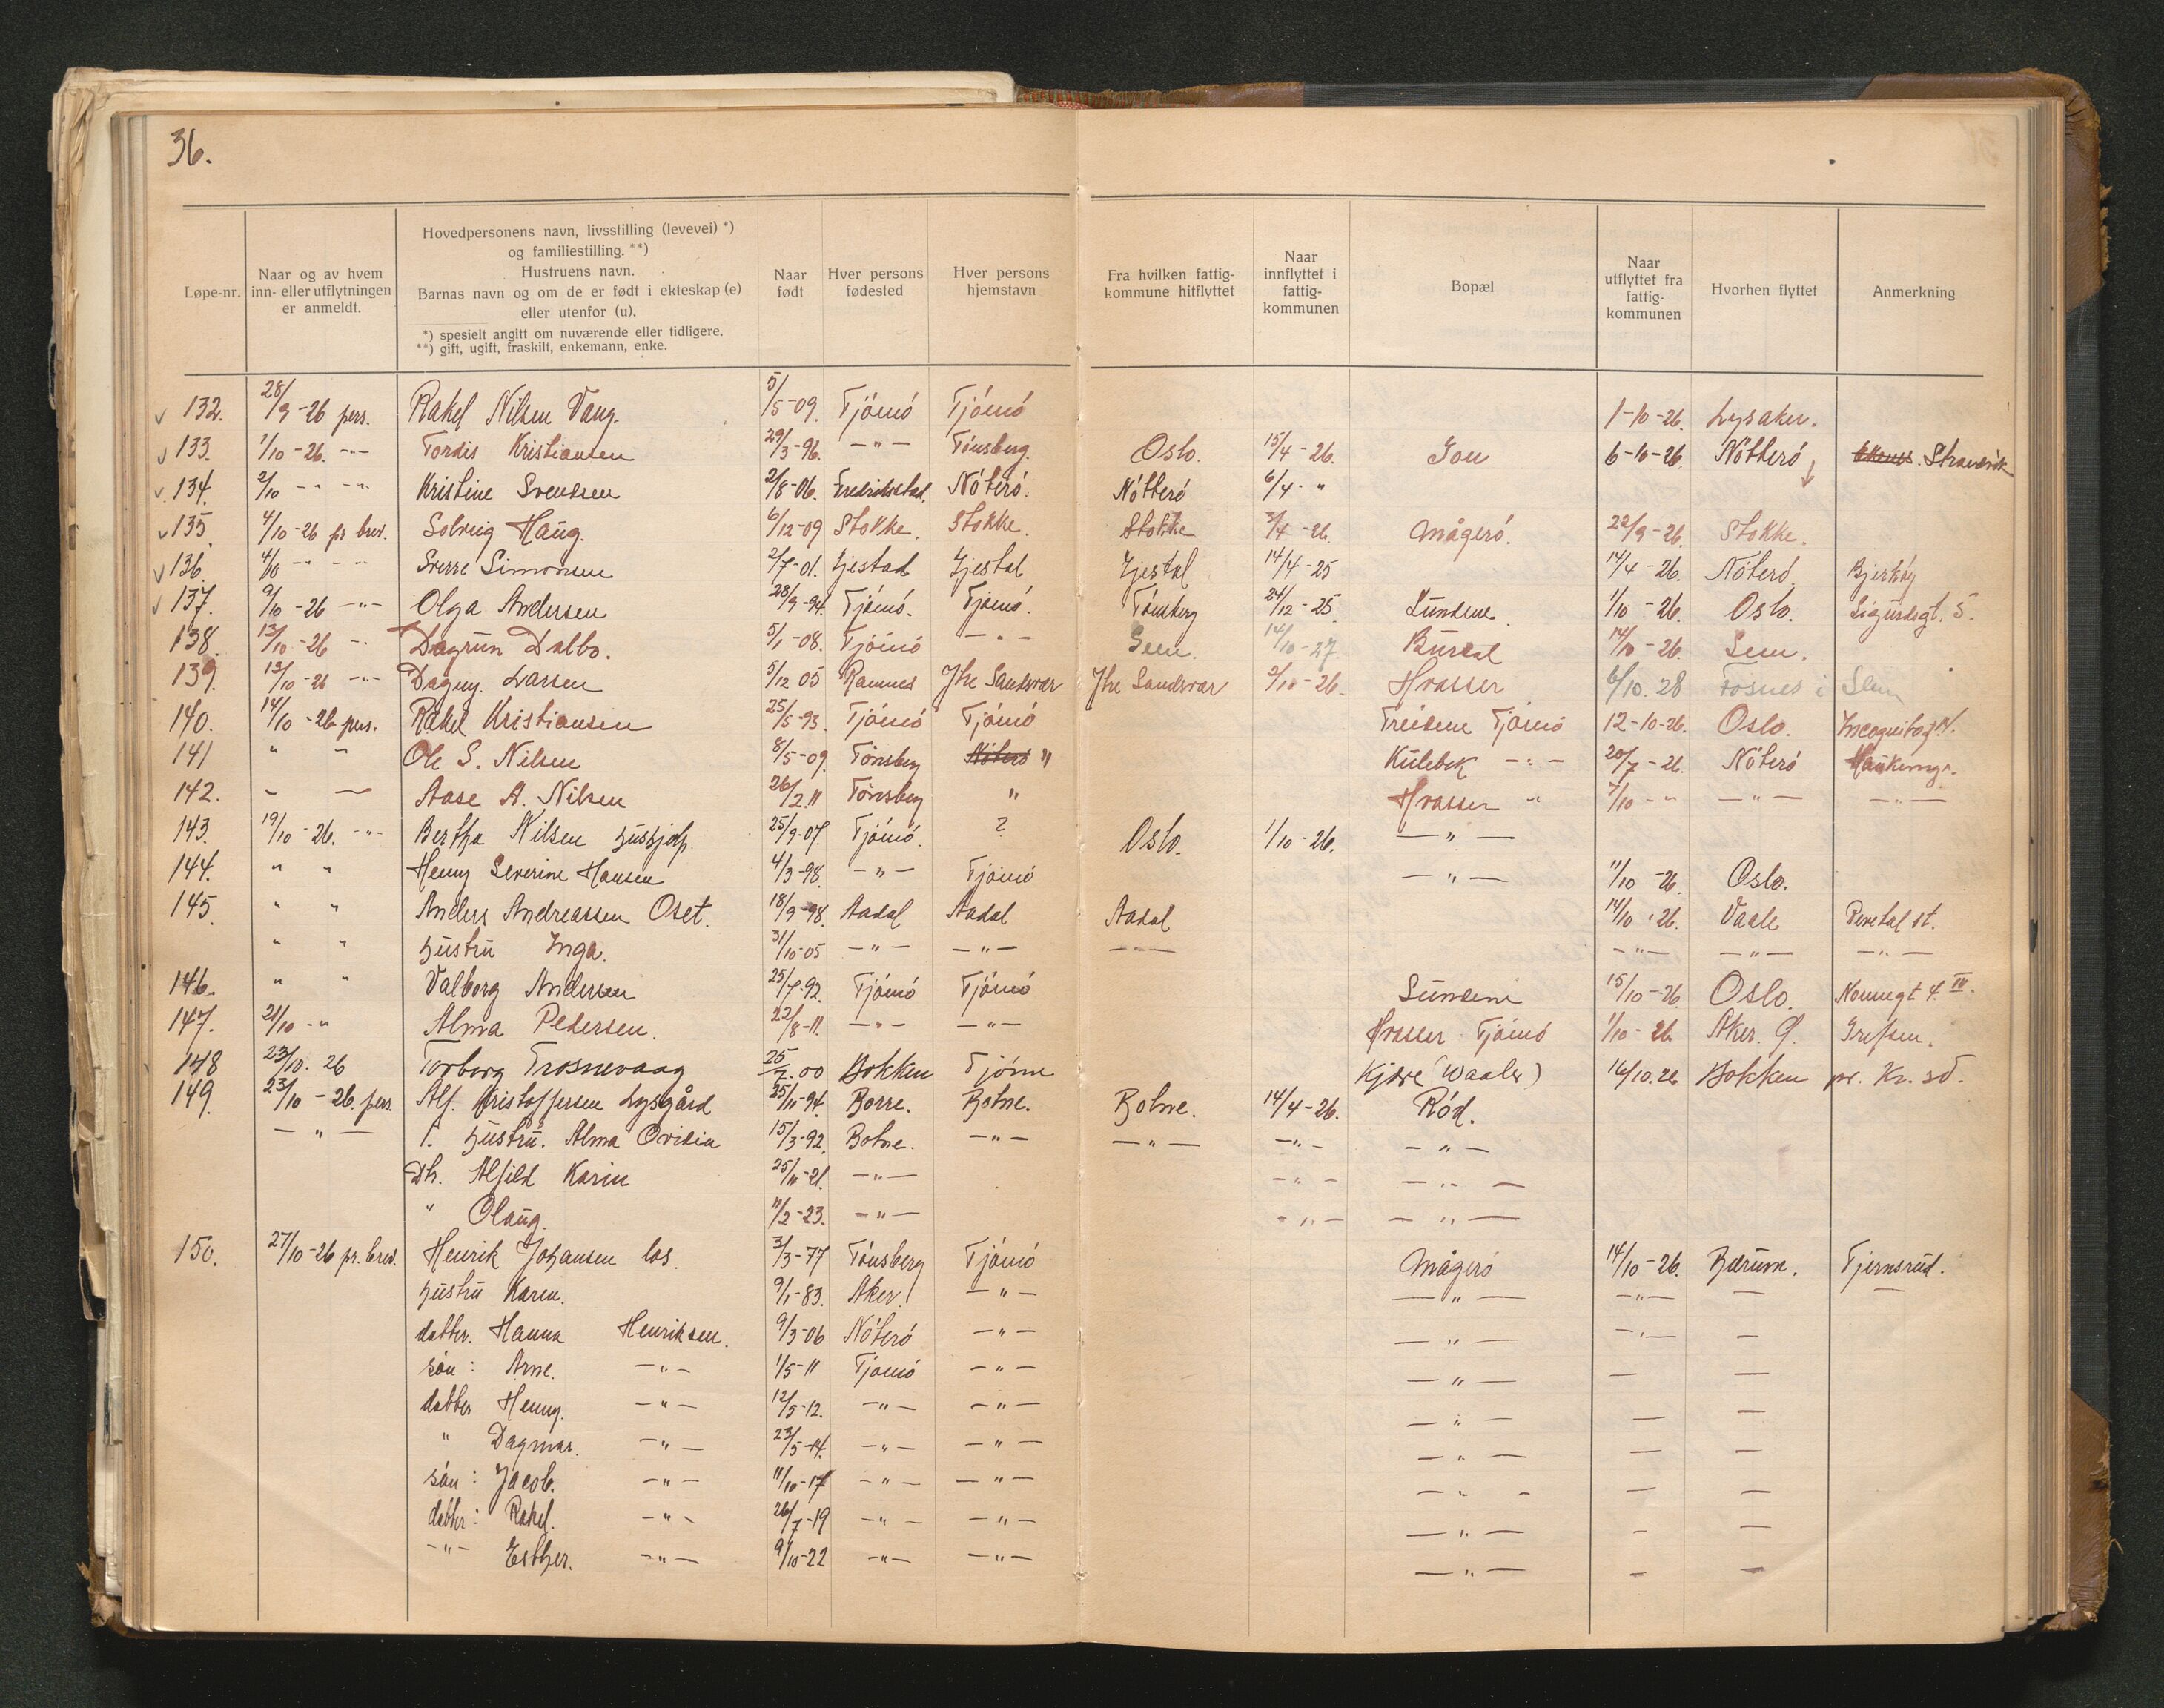 36.
Løpe-nr. | Naar og av hvem inn- eller utflytningen er anmeldt. | Hovedpersonens navn, livsstilling (levevei) *) og familiestilling. **) Hustruens navn. Barnas navn og om de er født i ekteskap (e) eller utenfor (u). *) spesielt angitt om nuværende eller tidligere. **) gift, ugift, fraskilt, enkemann, enke. | Naar født | Hver persons fødested | Hver persons hjemstavn | Fra hvilken fattig-kommune hitflyttet | Naar innflyttet i fattig-kommunen | Bopæl | Naar utflyttet fra fattig-kommunen | Hvorhen flyttet | Anmerkning
132. 28/9-26 pers. Rakel Nilsen Vaug. 5/5-09. Tjömö Tjömö 1-10-26. Lysaker.
133. 1/10-26. -"- Tordis Kristiansen 29/3-96. -"- Tönsberg. Oslo. 15/4-26. 6-10-26. Nötterö Strandvik
134. 2/10 -"- -"- Kristine Svendsen 2/8-06. Fredrikstad. Nöterö. Nötterö 6/4-"
135. 4/10-26 pr brev. Solveig Haug. 6/12-09 Stokke. Stokke. Stokke 3/4-26. Mågerö. 22/9-26. Stokke.
136. 4/10 -"- -"- Sverre Simonsen 2/7-01. Gjestad Gjestal Gjestal 14/4-25 14/4-26. Nöterö. Bjerköy
137. 9/10-26 -"- Olga Andersen 28/9-94. Tjömö. Tjömö. Tönsberg 24/12-25. Sundene. 1/10-26. Oslo. Sigurdsgt. 5.
138. 13/10-26 -"- Dagrun Dalbo. 5/1-08. Tjömö -"- Sem. 14/10-27. Burdal 14/10-26. Sem.
139. 13/10-26 -"- Dagny. Larsen 5/12 05 Ramnes Ytre Sandsvær Ytre Sandsvær 2/10-26. Hvasser 6/10. 28 Fosnes i Slem
140. 14/10-26 pers. Rakel Kristiansen 25/5-93. Tjömö Tjömö Treidene Tjömö 12-10-26. Oslo.
141 " " Ole S. Nilsen 8/5-09. Tönsberg Nöterö " Kulebek -"- 20/7-26. Nöterö
142. - - Aase A. Nilsen 26/2.11 Tönsberg " Hvasser " 7/10 -" -"- -"-
143. 19/10-26. -"- Bertha Nilsen hushjelp. 25/9-07. Tjömö. ? Oslo. 1/10-26. -"-
144. " " Henny Severine Hansen 4/3-98. -"- Tjömö -"- 11/10-26. Oslo.
145. " " Anders Andreassen Oset. 18/9-98. Aadal Aadal Aadal 14/10-26. Vaale Revetal st.
" " hustru Inga. 31/10-05 -"- -"- -"- -"- -"- -"-
146. " " Valborg Andersen 25/7-92. Tjömö Tjömö Sundene 15/10-26 Oslo. 4. IV.
147. 21/10-" Alma Pedersen. 22/8-11. -"- -"- Hvasser Tjömö 1/10-26. Aker. Grefsen.
148 23/10. 26 Torborg Trosnevaag 25/7.00 Dokken Tjöme Kjære (Waaler) 16/10.26 Dokken pr. Kr. sd.
149. 23/10-26. pers. Alf. Kristoffersen Lysgård 25/11-94. Borre. Botne. Botne. 14/4-26. Röd.
-"- 1. hustru. Alma Ovidia 15/3-92. Botne. -"- -"- -"- -"-
Dtr. Alfild Karin 25/11-21. -"- -"- -"-
" Olaug. 11/2-23. -"- -"- -"-
150. 27/10-26 pr. brev. Henrik Johansen los. 3/3-77 Tönsberg Tjömö Mågerö 14/10-26. Bærum. Tjernsrud.
hustru Karen. 9/1-83. Aker. -"- -"- -"- - -
datter. Hanna Henriksen. 9/3-06 Nöterö -"- -"- -"- -
sön: Arne. -"- 1/5-11 Tjömö -"- -"- - -
datter Henny. -"- 12/5-12. -"- -"- -"- - -
" Dagmar. -"- 23/5-14. -"- -"- -"- - -
sön: Jacob. -"- 11/10-17 -"- -"- -"- - -
datter: Rakel. -"- 26/7-19 -"- -"- -"- - -
-"- Esther. -"- 9/10-22 -"- -"- -"- - -